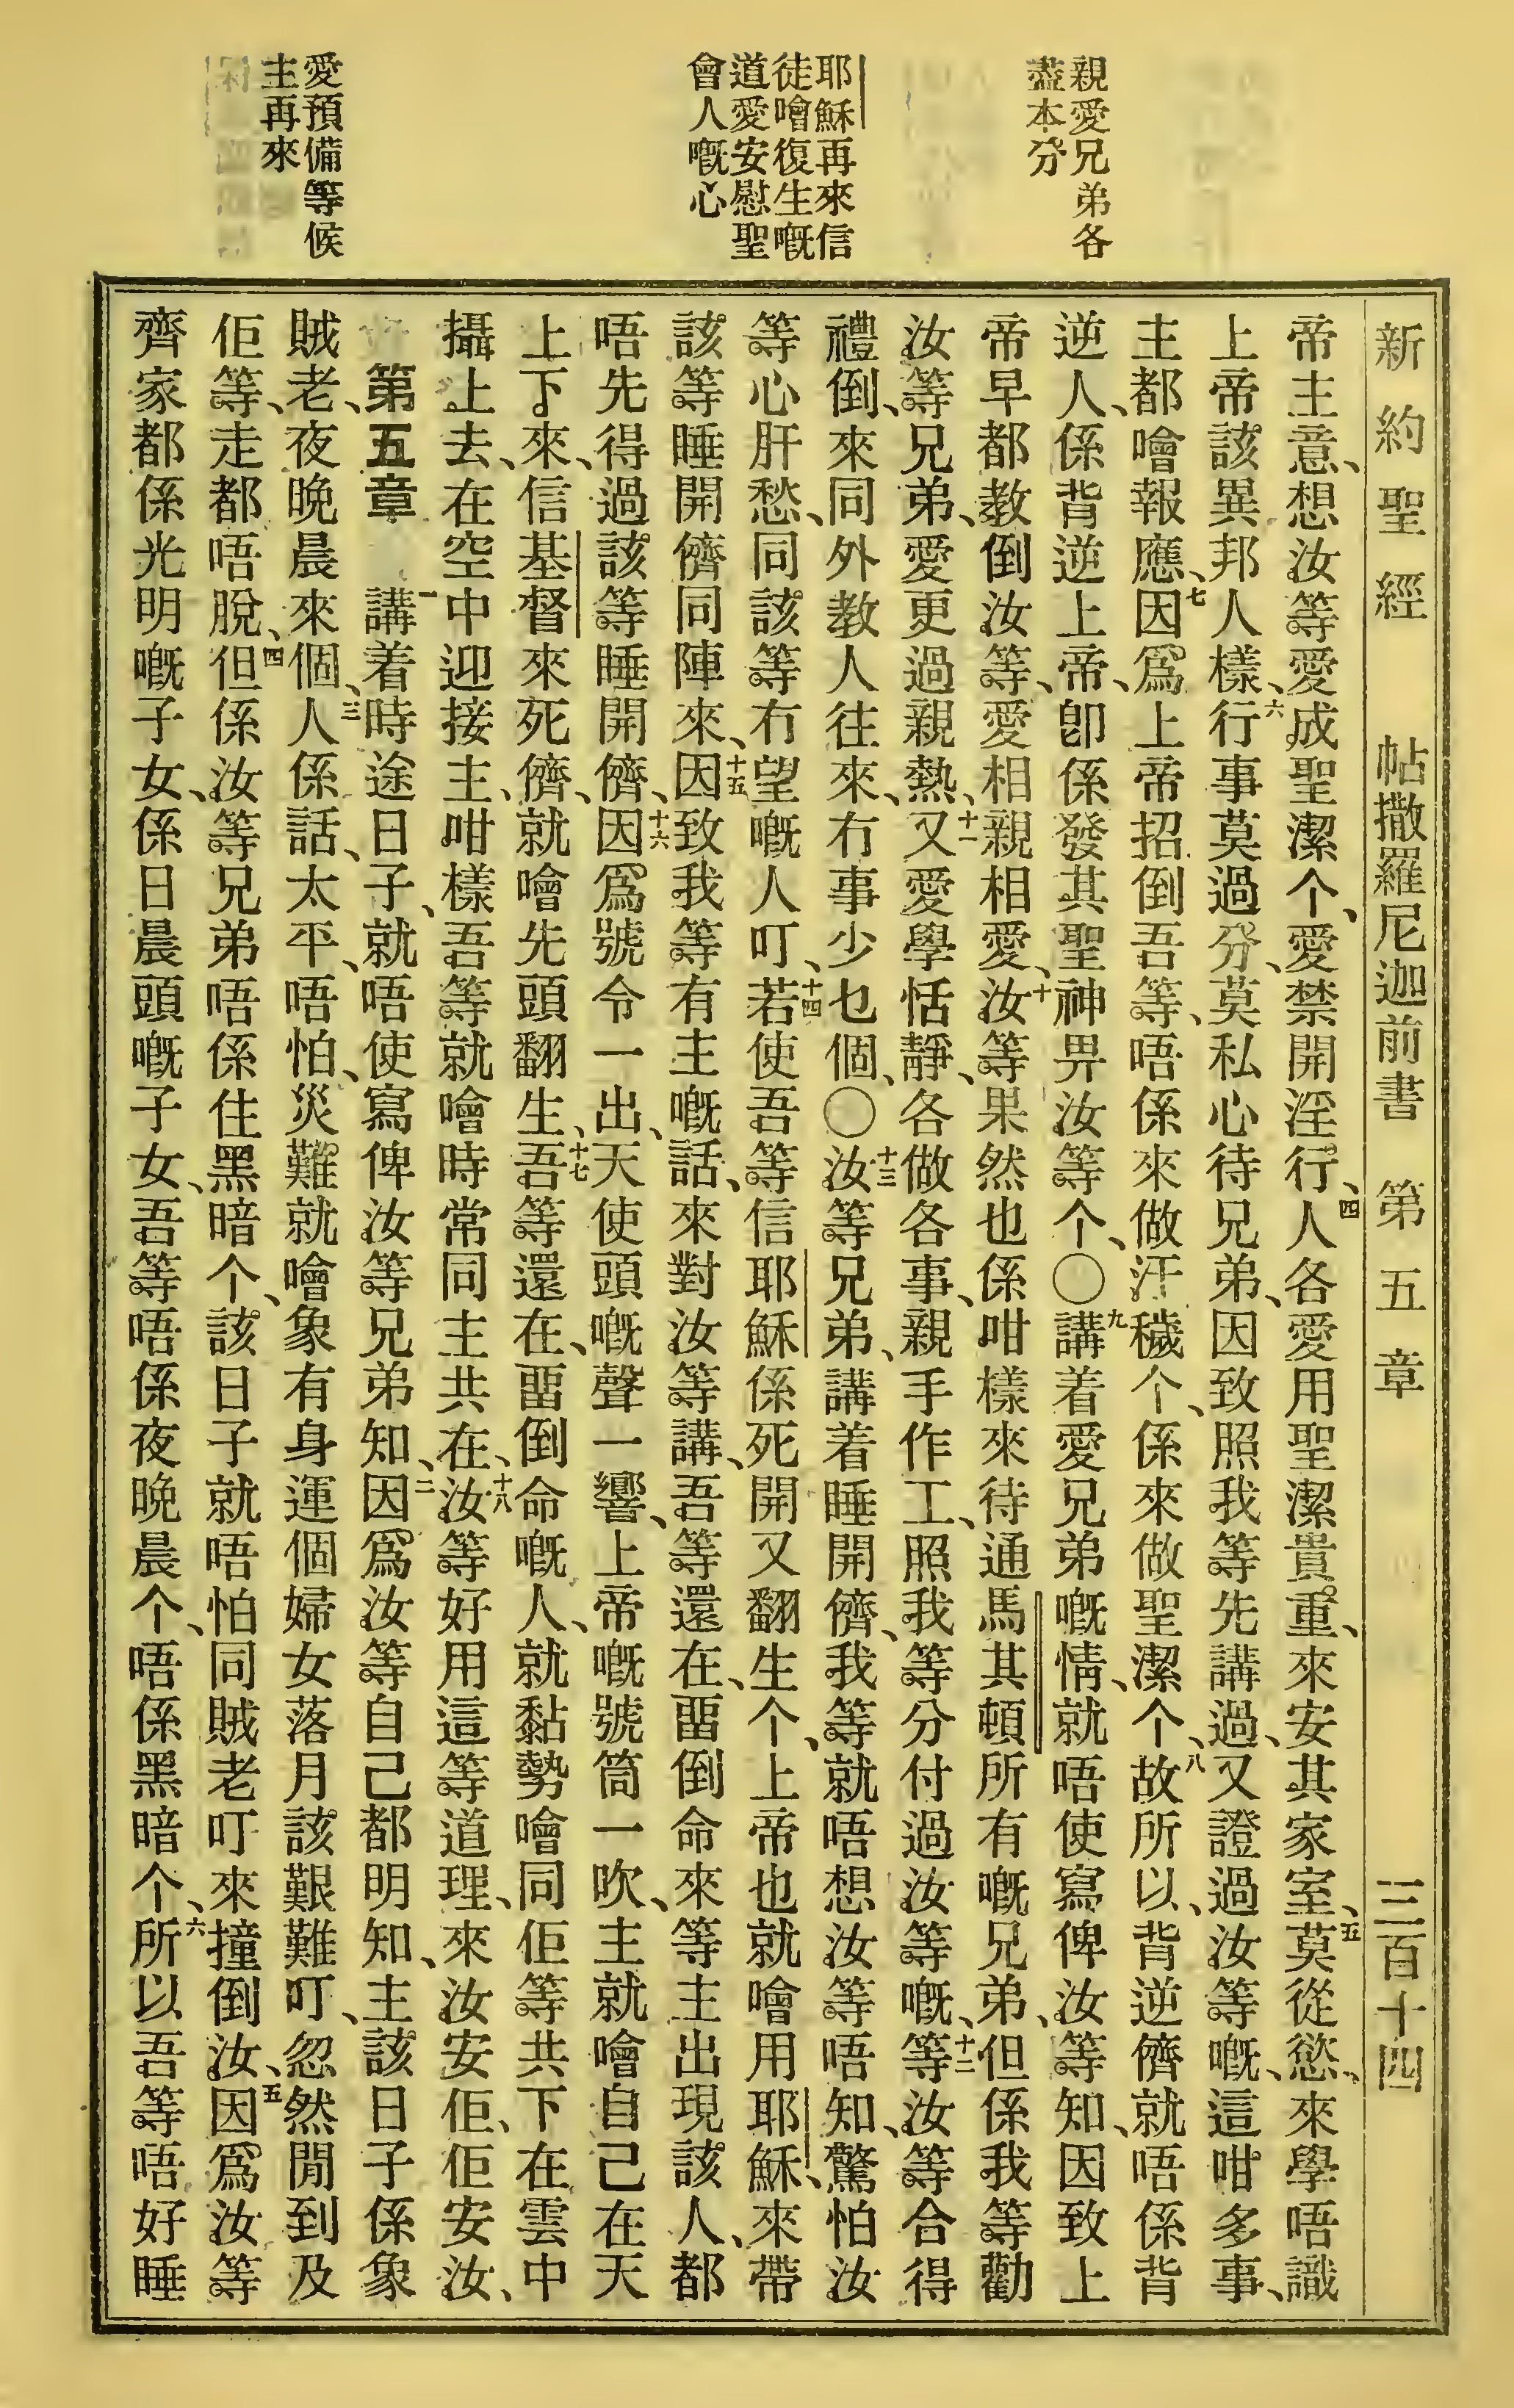 親愛兄弟各
盡本分
耶穌再來信
徒噲復生嘅
道愛安慰聖
會人嘅心
愛預備等候
主再來
新約聖經 帖撒羅尼迦前書 第五章 三百十四
帝主意、想汝等愛成聖潔个、愛禁開淫行、四人各愛用聖潔貴重、來安其家室、五莫從慾、來學唔識
上帝該異邦人樣、六行事莫過分、莫私心待兄弟、因致照我等先講過、又證過汝等嘅、這咁多事、
主都噲報應、七因爲上帝招倒吾等、唔係來做汗穢个、係來做聖潔个、八故所以、背逆儕就唔係背
逆人、係背逆上帝、卽係發其聖神畀汝等个、〇九講着愛兄弟嘅情、就唔使寫俾汝等知、因致上
帝早都教倒汝等、愛相親相愛、十汝等果然也係咁樣來待通馬其頓所有嘅兄弟、但係我等勸
汝等兄弟、愛更過親熱、十一又愛學恬靜、各做各事、親手作工、照我等分付過汝等嘅、十二等汝等合得
禮倒、來同外教人往來、冇事少乜個、〇十三汝等兄弟、講着睡開儕、我等就唔想汝等唔知、驚怕汝
等心肝愁、同該等冇望嘅人叮、十四若使吾等信耶穌係死開又翻生个、上帝也就噲用耶穌、來帶
該等睡開儕同陣來、十五因致我等有主嘅話、來對汝等講、吾等還在、畱倒命來等主出現該人、都
唔先得過該等睡開儕、十六因爲號令一出、天使頭嘅聲一響、上帝嘅號筒一吹、主就噲自己在天
上下來、信基督來死儕、就噲先頭翻生、十七吾等還在、畱倒命嘅人、就黏勢噲同佢等共下在雲中
攝上去、在空中迎接主、咁樣吾等就噲時常同主共在、十八汝等好用這等道理、來汝安佢、佢安汝、
第五章 一講着時途日子、就唔使寫俾汝等兄弟知、二因爲汝等自己都明知、主該日子係象
賊老、夜晚晨來個、三人係話、太平、唔怕、災難就噲象有身運個婦女落月該艱難叮、忽然閒到及
佢等、走都唔脫、四但係汝等兄弟唔係住黑暗个、該日子就唔怕同賊老叮來撞倒汝、五因爲汝等
齊家都係光明嘅子女、係日晨頭嘅子女、吾等唔係夜晚晨个、唔係黑暗个、六所以吾等唔好睡